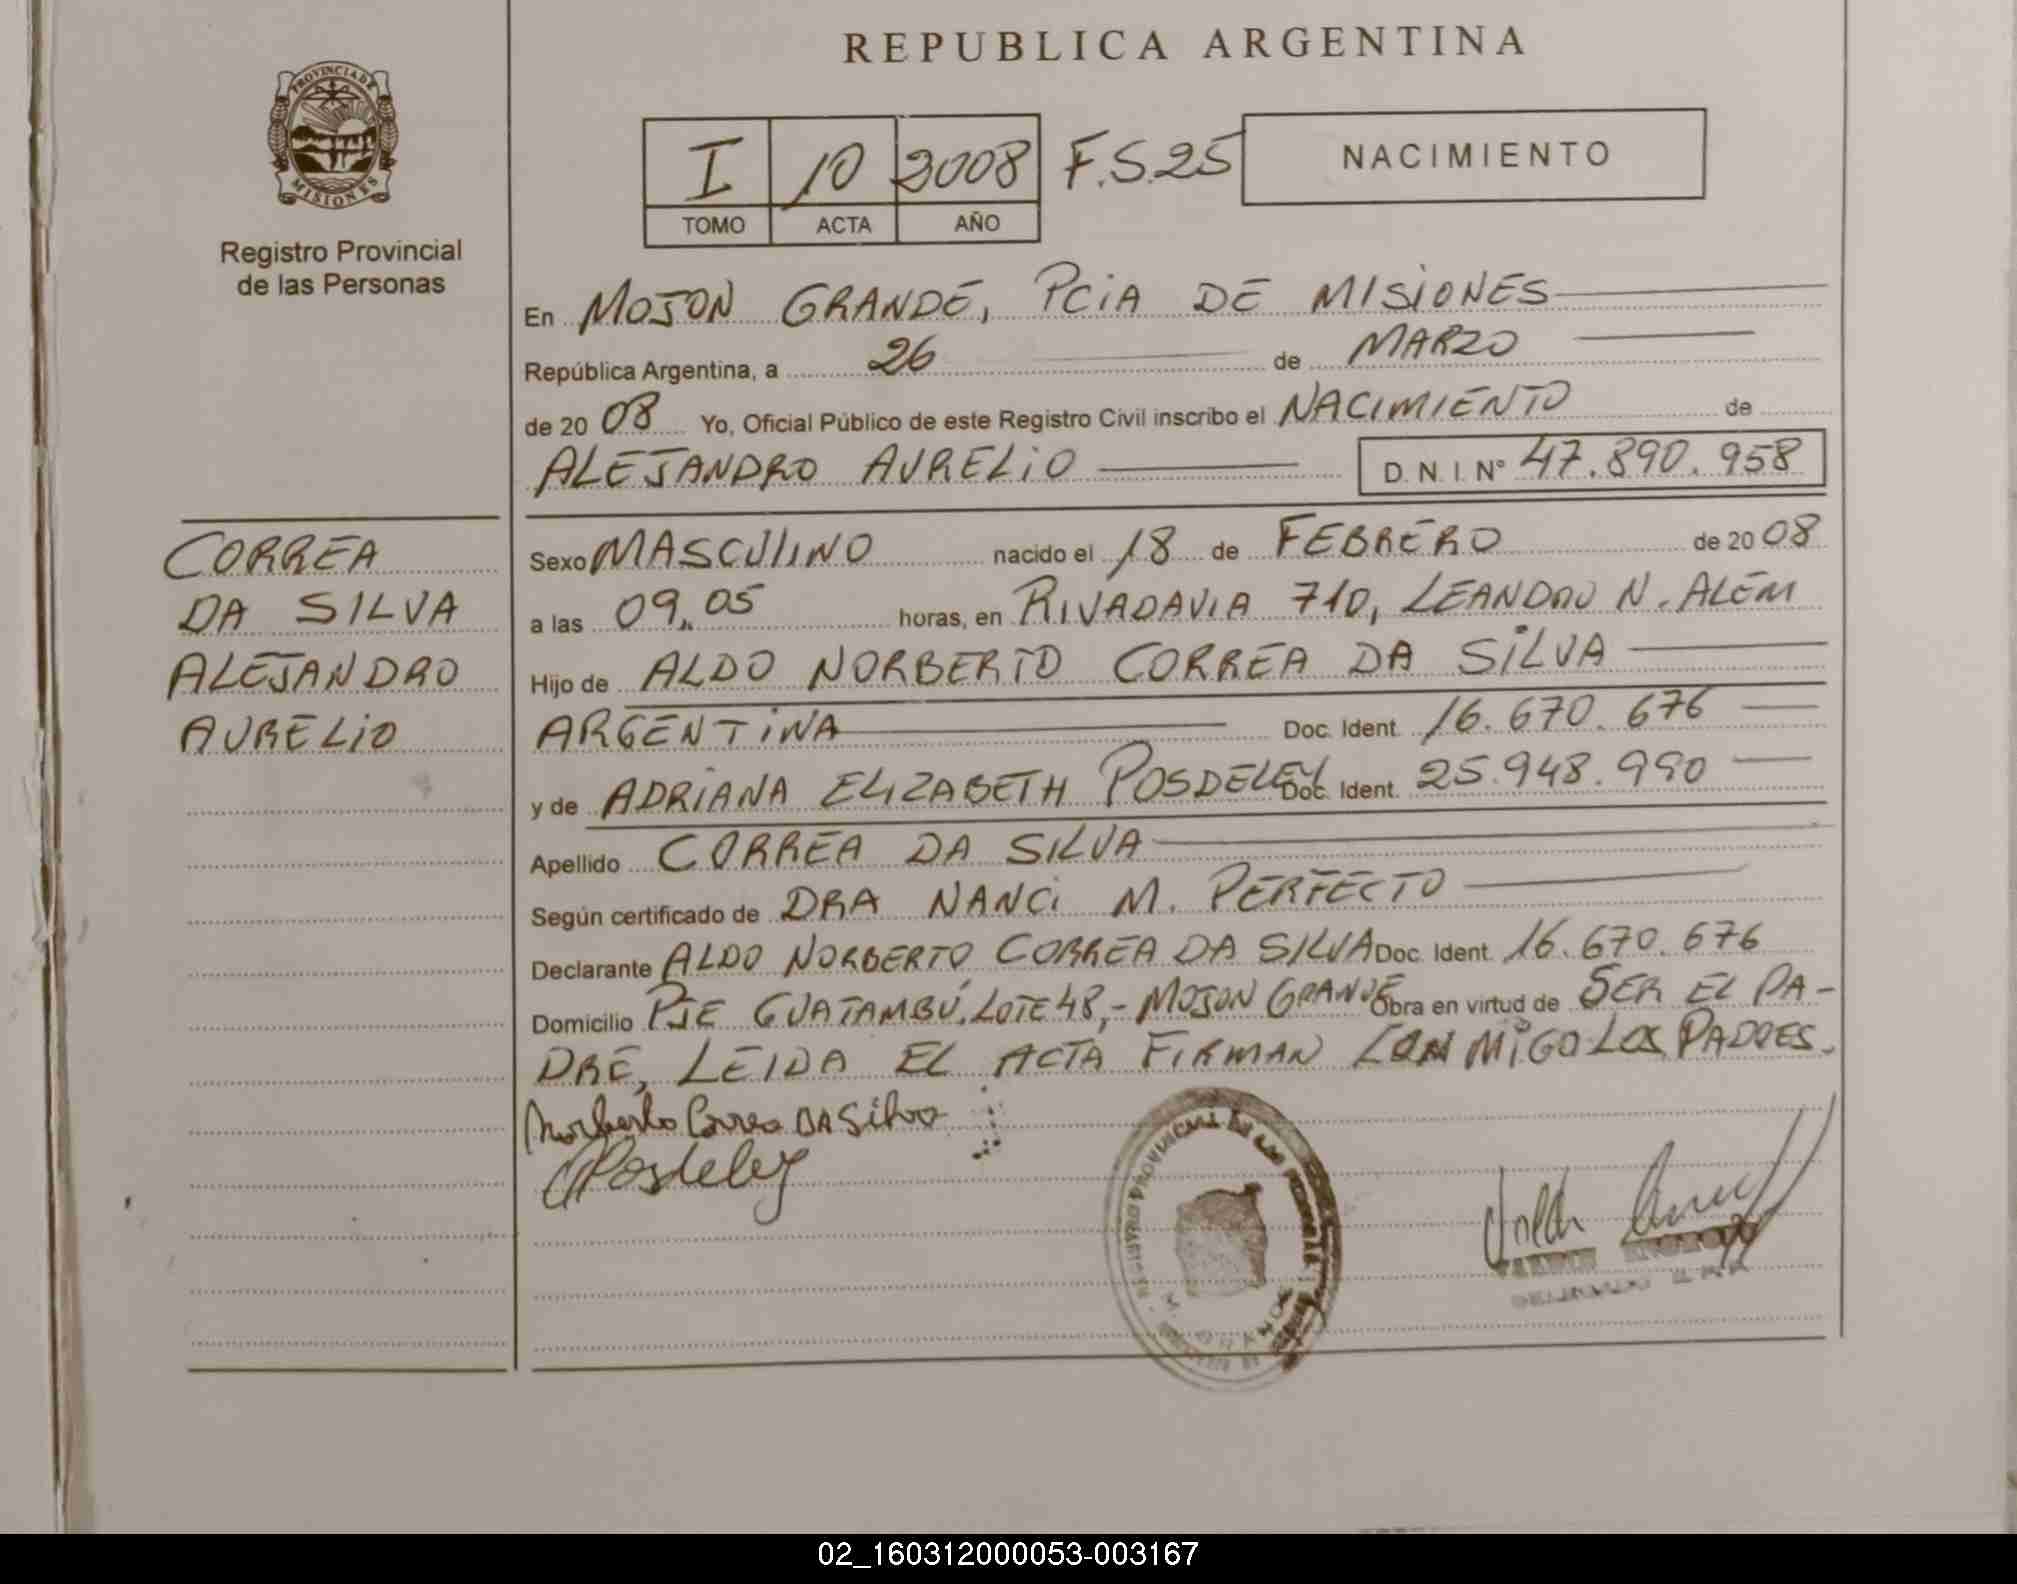 REPUBLICA ARGENTINA
PROVINCIA DE
MISIONES
Registro Provincial
de las Personas
I 10 2008 F.S.25 NACIMIENTO
TOMO ACTA AÑO
En MOJON GRANDE, PCIA DE MISIONES
República Argentina, a 26 de MARZO
de 2008 Yo, Oficial Público de este Registro Civil inscribo el NACIMIENTO de
ALEJANDRO AURELIO D.N.I. N° 47.890.958
CORREA
DA SILVA
ALEJANDRO
AURELIO
Sexo MASCULINO nacido el 18 de FEBRERO de 2008
a las 09,05 horas, en RIVADAVIA 710, LEANDRO N. ALEM
Hijo de ALDO NORBERTO CORREA DA SILVA
ARGENTINA Doc. Ident. 16.670.676
y de ADRIANA ELIZABETH POSDELEY Doc. Ident. 25.948.990
Apellido CORREA DA SILVA
Según certificado de DRA NANCI M. PERFECTO
Declarante ALDO NORBERTO CORREA DA SILVA Doc. Ident. 16.670.676
Domicilio PJE GUATAMBÚ, LOTE 48,- MOJON GRANDE Obra en virtud de SER EL PA-
DRE, LEIDA EL ACTA FIRMAN CON MIGO LOS PADRES.
Norberto Correa DA Silva
Posdeley
REGISTRO PROVINCIAL DE LAS
GRANDE
02_160312000053-003167